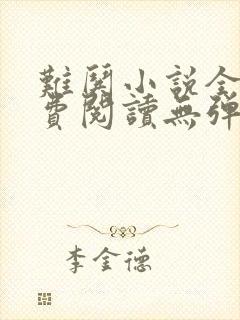 難哭小説全
費閱讀無彈
李金德